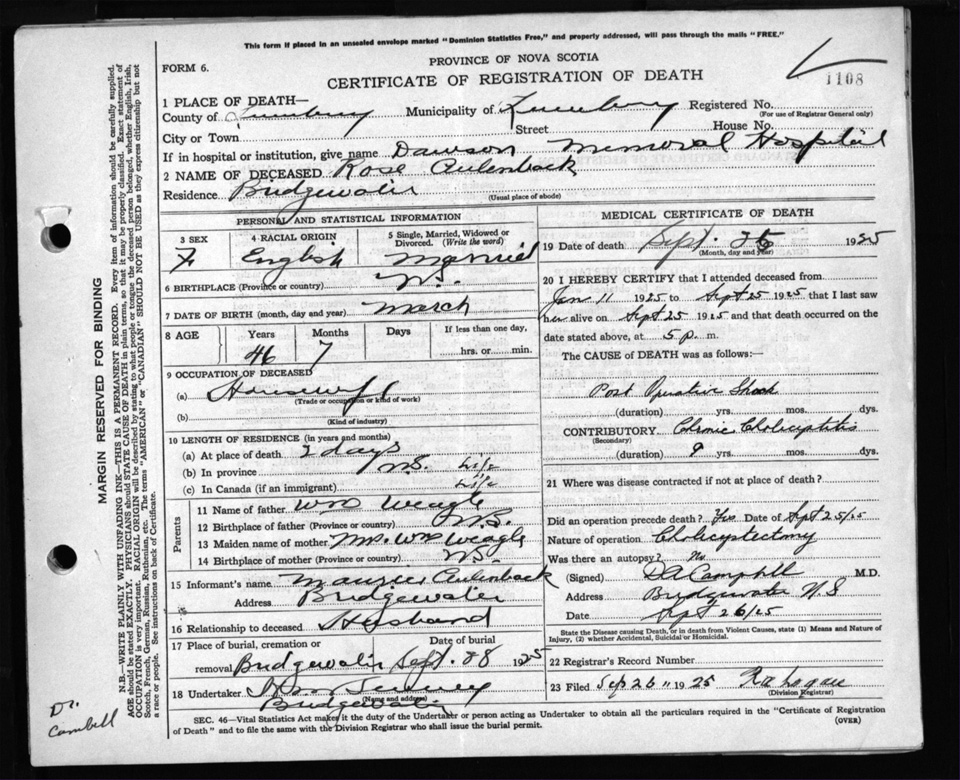 This form if placed in an unsealed envelope marked "Dominion Statistics Free," and properly addressed, will pass through the mails "FREE."
PROVINCE OF NOVA SCOTIA
FORM 6.
CERTIFICATE OF REGISTRATION OF DEATH
1108
1 PLACE OF DEATH—
County of Lunenburg Municipality of Lunenburg Registered No.
(For use of Registrar General only)
City or Town Street House No.
If in hospital or institution, give name Dawson Memorial Hospital
2 NAME OF DECEASED Rose Aulenback
Residence Bridgewater
(Usual place of abode)
PERSONAL AND STATISTICAL INFORMATION
3 SEX 4 RACIAL ORIGIN 5 Single, Married, Widowed or Divorced. (Write the word)
F English Married
6 BIRTHPLACE (Province or country) N.S.
7 DATE OF BIRTH (month, day and year) March
8 AGE Years Months Days If less than one day,
46 7 hrs. or min.
9 OCCUPATION OF DECEASED
(a) Housewife
(Trade or occupation or kind of work)
(b)
(Kind of industry)
10 LENGTH OF RESIDENCE (in years and months)
(a) At place of death 2 days
(b) In province N.S. Life
(c) In Canada (if an immigrant) Life
Parents
11 Name of father Wm Weagle
12 Birthplace of father (Province or country) N.S.
13 Maiden name of mother Mrs. Wm Weagle
14 Birthplace of mother (Province or country) N.S.
15 Informant's name Aulenback
Address Bridgewater
16 Relationship to deceased Husband
17 Place of burial, cremation or removal Bridgewater Date of burial Sept. 28 1925
18 Undertaker
(Name and address)
Bridgewater
MEDICAL CERTIFICATE OF DEATH
19 Date of death Sept. 25 1925
(Month, day and year)
20 I HEREBY CERTIFY that I attended deceased from
Jan 11 1925 to Sept 25 1925, that I last saw
her alive on Sept 25 1925 and that death occurred on the
date stated above, at 5 p. m.
The CAUSE OF DEATH was as follows:
Post Operative Shock
(duration) yrs. mos. dys.
CONTRIBUTORY Chronic Cholecystitis
(Secondary)
(duration) 9 yrs. mos. dys.
21 Where was disease contracted if not at place of death?
Did an operation precede death? Yes Date of Sept 25/25
Nature of operation Cholecystectomy
Was there an autopsy? No
(Signed) D A Campbell M.D.
Address Bridgewater N S
Date Sept 26/25
State the Disease causing Death, or in death from Violent Causes, state (1) Means and Nature of
Injury, (2) whether Accidental, Suicidal or Homicidal.
22 Registrar's Record Number
23 Filed Sep 26" 1925 Logan
(Division Registrar)
SEC. 46—Vital Statistics Act makes it the duty of the Undertaker or person acting as Undertaker to obtain all the particulars required in the "Certificate of Registration
of Death" and to file the same with the Division Registrar who shall issue the burial permit.
(OVER)
MARGIN RESERVED FOR BINDING
N.B.—WRITE PLAINLY, WITH UNFADING INK—THIS IS A PERMANENT RECORD. Every item of information should be carefully supplied.
AGE should be stated EXACTLY. PHYSICIANS should STATE CAUSE OF DEATH in plain terms, so that it may be properly classified. Exact statement of
OCCUPATION is very important. RACIAL ORIGIN will be described by stating to what people or tongue the deceased person belonged, whether English, Irish,
Scotch, French, German, Russian, Ruthenian, etc. The terms "AMERICAN" or "CANADIAN" SHOULD NOT BE USED as they express citizenship but not
a race or people. See instructions on back of Certificate.
Dr.
Cambell